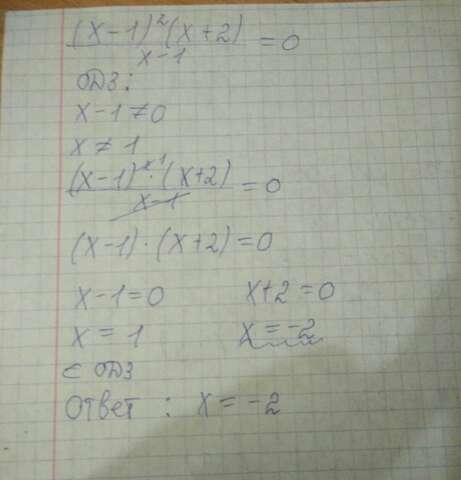 (x-1)²(x+2) / x-1 = 0
ОДЗ:
x-1≠0
x≠1
(x-1)²·(x+2) / x-1 = 0
(x-1)·(x+2)=0
x-1=0 x+2=0
x=1 x=-2
∈ ОДЗ
Ответ: x=-2